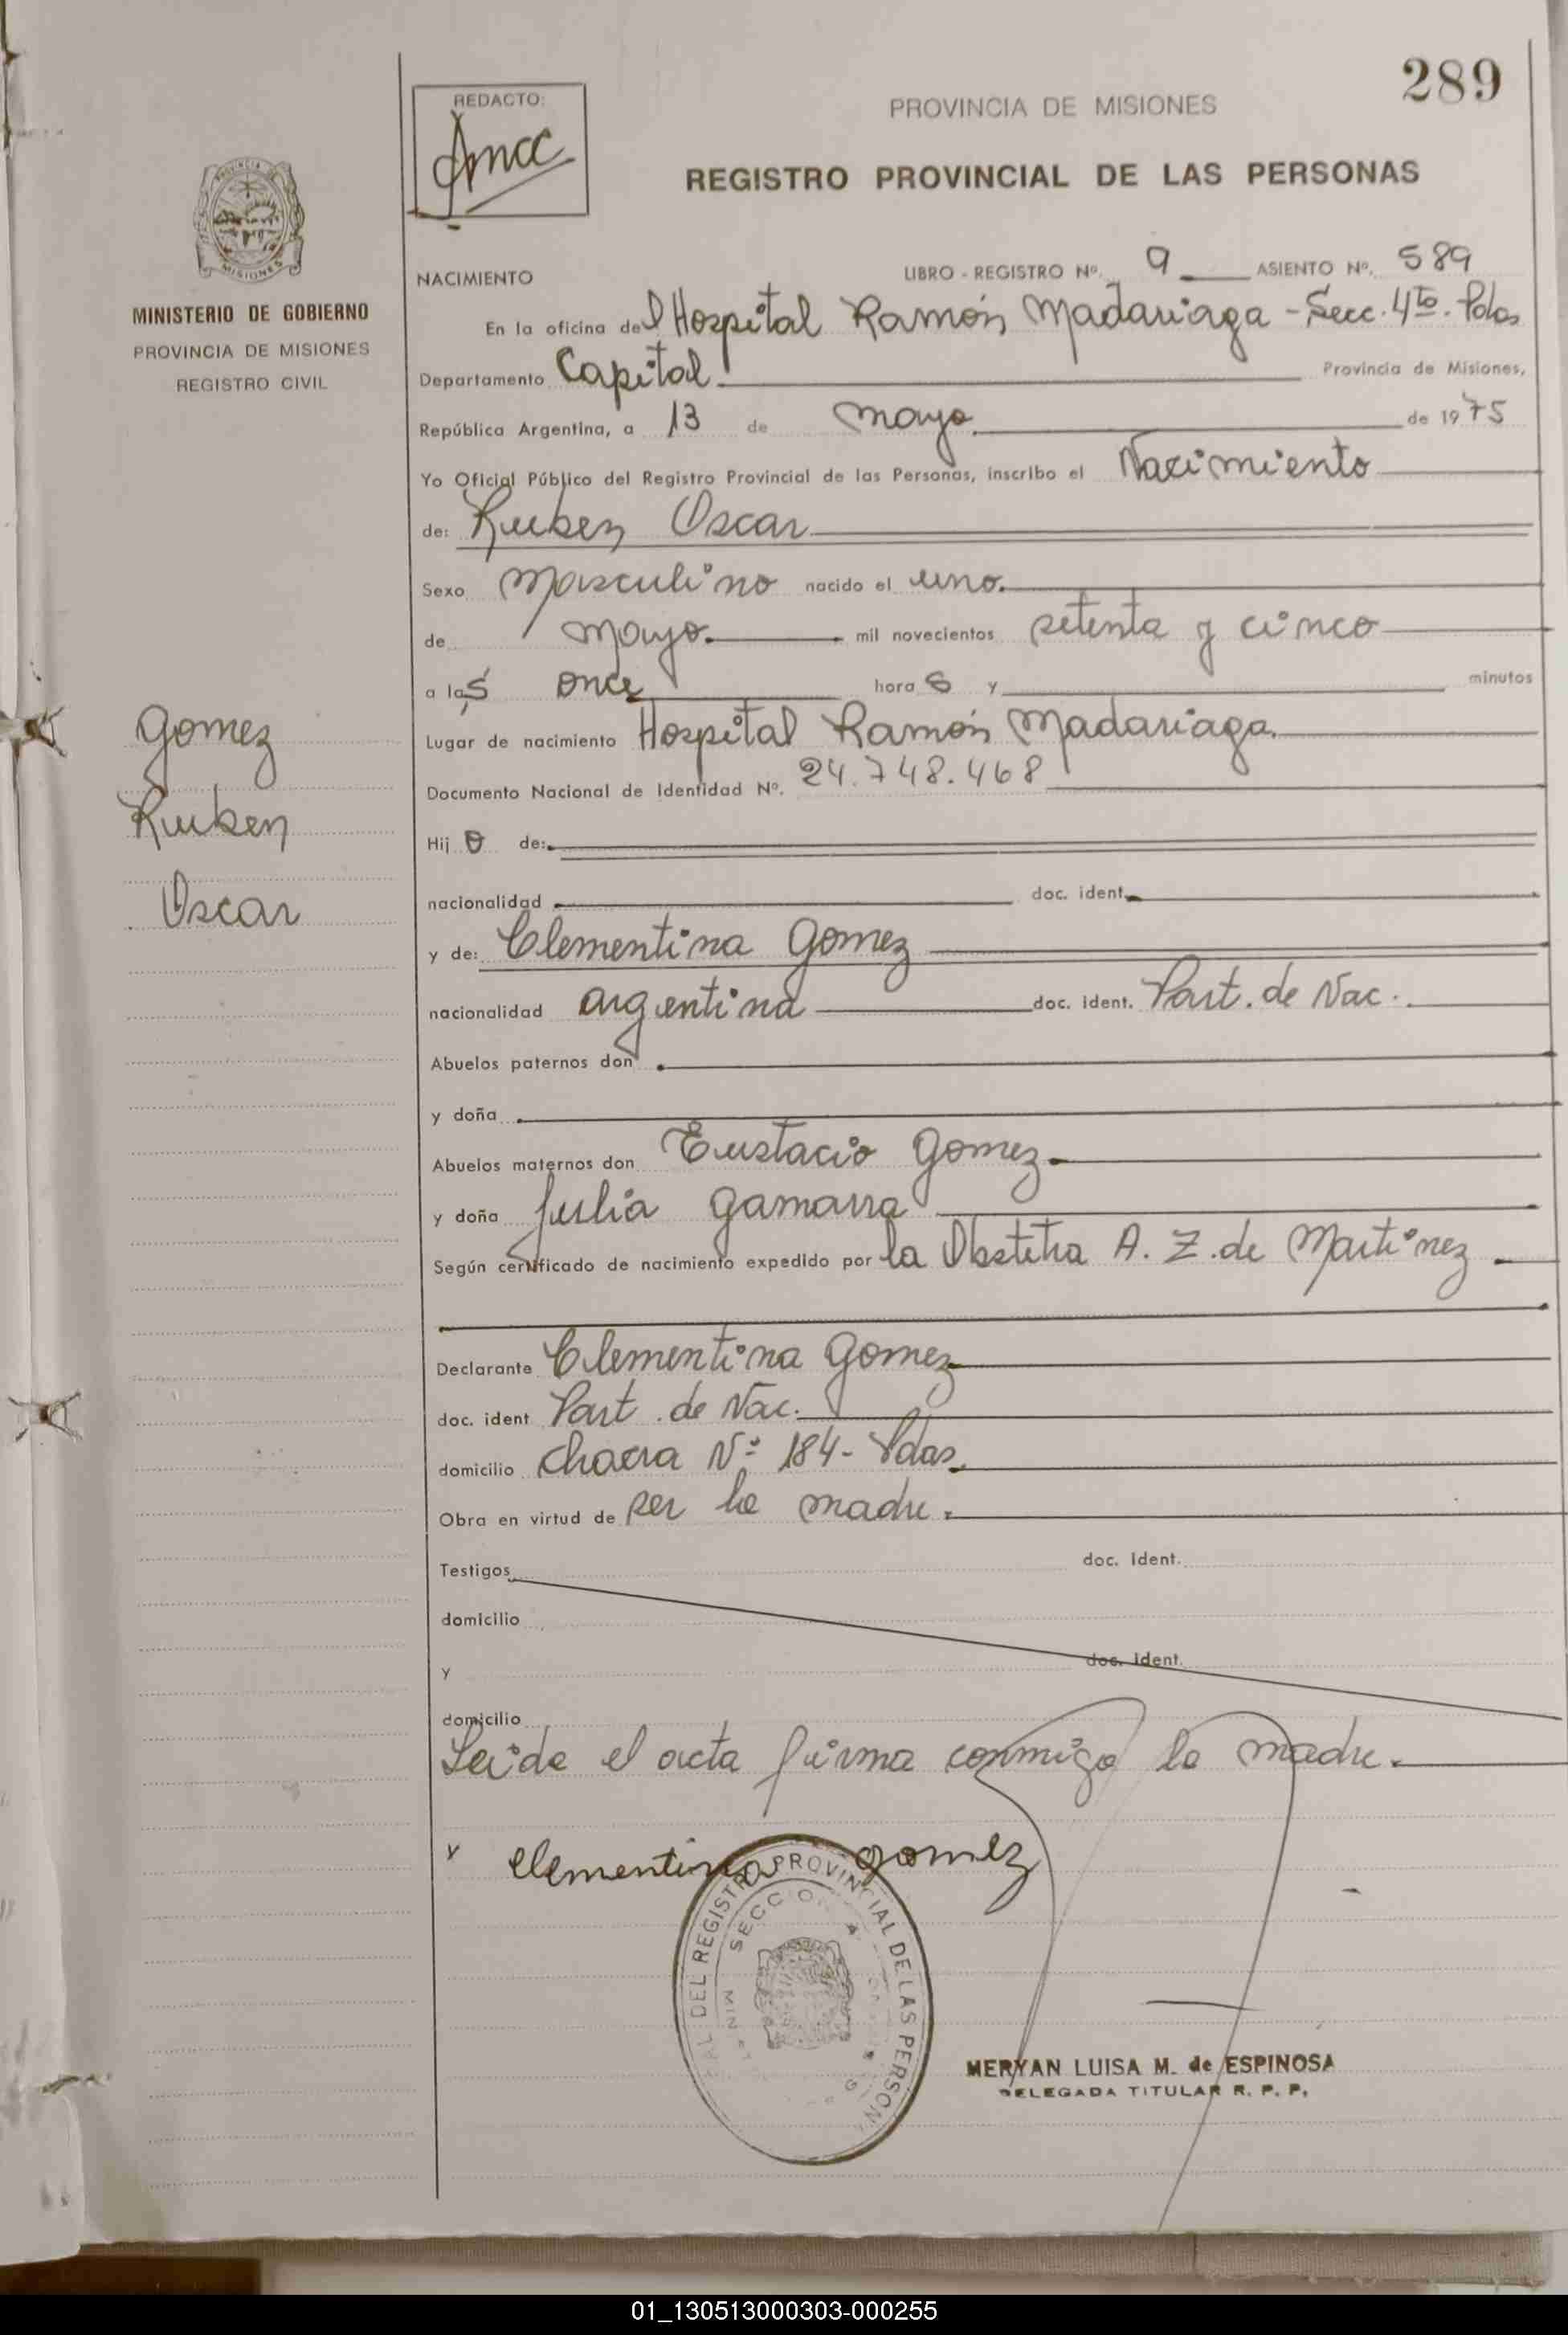 289
REDACTO:
PROVINCIA DE MISIONES
REGISTRO PROVINCIAL DE LAS PERSONAS
MISIONES
MINISTERIO DE GOBIERNO
PROVINCIA DE MISIONES
REGISTRO CIVIL
Gomez
Ruben
Oscar
NACIMIENTO LIBRO - REGISTRO Nº. 9 ASIENTO Nº. 589
En la oficina del Hospital Ramón Madariaga - Secc. 4ta. Pdas
Departamento Capital Provincia de Misiones,
República Argentina, a 13 de mayo de 1975
Yo Oficial Público del Registro Provincial de las Personas, inscribo el Nacimiento
de: Ruben Oscar
Sexo Masculino nacido el uno.
de mayo. mil novecientos setenta y cinco
a las once horas y minutos
Lugar de nacimiento Hospital Ramón Madariaga.
Documento Nacional de Identidad Nº. 24.748.468
Hijo de:
nacionalidad doc. ident.
y de: Clementina Gomez
nacionalidad argentina doc. ident. Part. de Nac.
Abuelos paternos don
y doña
Abuelos maternos don Eustacio Gomez
y doña Julia Gamarra
Según certificado de nacimiento expedido por la Obstetra A. Z. de Martinez
Declarante Clementina Gomez
doc. ident Part. de Nac.
domicilio Chacra Nº 184 - Pdas.
Obra en virtud de ser la madre.
Testigos doc. Ident.
domicilio
y doc. Ident.
domicilio
Leida el acta firma conmigo la madre.
Clementina Gomez
DEL REGISTRO PROVINCIAL DE LAS PERSON
SECCION
MERYAN LUISA M. de ESPINOSA
DELEGADA TITULAR R. P. P.
01_130513000303-000255